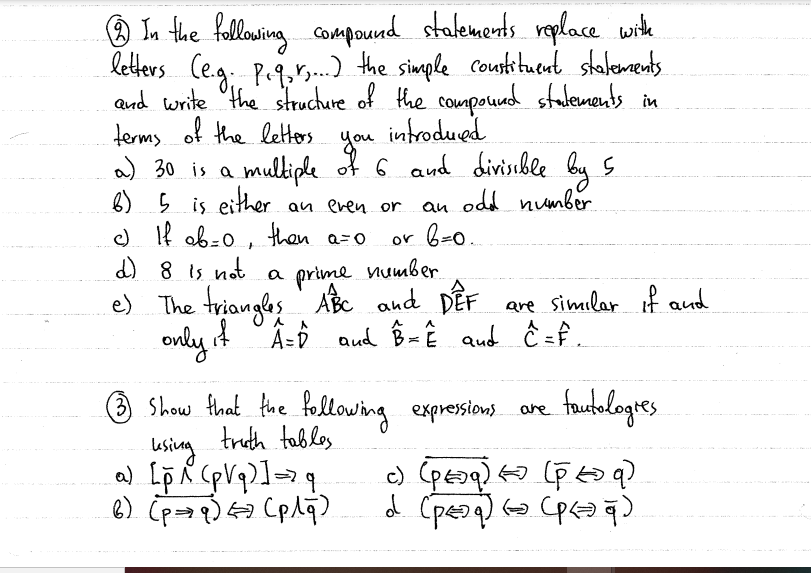 ② In the following compound statements replace with
letters (e.g. p,q,r,...) the simple constituent statements
and write the structure of the compound statements in
terms of the letters you introduced
a) 30 is a multiple of 6 and divisible by 5
b) 5 is either an even or an odd number
c) If ab=0, then a=0 or b=0.
d) 8 is not a prime number
e) The triangles AB̂C and DÊF are similar if and
only if Â=D̂ and B̂=Ê and Ĉ=F̂.
③ Show that the following expressions are tautologies
using truth tables
a) [p̄ ∧ (p∨q)] ⇒ q c) \overline{(p⇔q)} ⇔ (p̄ ⇔ q)
b) \overline{(p⇒q)} ⇔ (p∧q̄) d \overline{(p⇔q)} ⇔ (p⇔q̄)